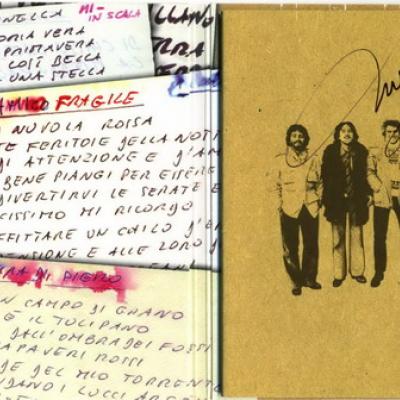 NELLA MI-
IN SCALA
ORIA VERA
PRIMAVERA
COSÌ BELLA
UNA STELLA
LLANO
RRA
AMICO FRAGILE
NUVOLA ROSSA
TE FERITOIE DELLA NOTT
DI ATTENZIONE E D'AM
BENE PIANGI PER ESSERE
DIVERTIRVI LE SERATE E
CISSIMO MI RICORDO
FFITTARE UN CHILO D'E
ENSIONE E ALLE LORO
RRA DI PIERO
N CAMPO DI GRANO
È IL TULIPANO
DALL'OMBRA DEI FOSSI
PAPAVERI ROSSI
DE DEL MIO TORRENTE
NDANO I LUCCI ARGE